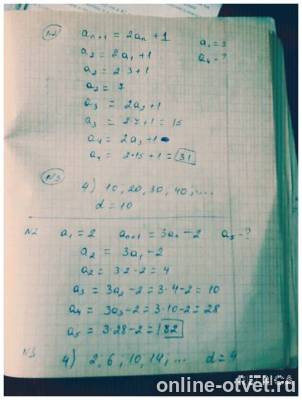 N1 aₙ₊₁ = 2aₙ + 1 a₁ = 3
a₂ = 2a₁ + 1 a₄ - ?
a₂ = 2·3+1
a₂ = 7
a₃ = 2a₂+1
a₃ = 2·7+1 = 15
a₄ = 2a₃+1
a₄ = 2·15+1 = 31
N3 4) 10, 20, 30, 40, ...
d = 10
N2 a₁ = 2 aₙ₊₁ = 3aₙ - 2 a₅ - ?
a₂ = 3a₁ - 2
a₂ = 3·2 - 2 = 4
a₃ = 3a₂ - 2 = 3·4 - 2 = 10
a₄ = 3a₃ - 2 = 3·10 - 2 = 28
a₅ = 3·28 - 2 = 82
N3 4) 2, 6, 10, 14, ... d = 4
online-otvet.ru